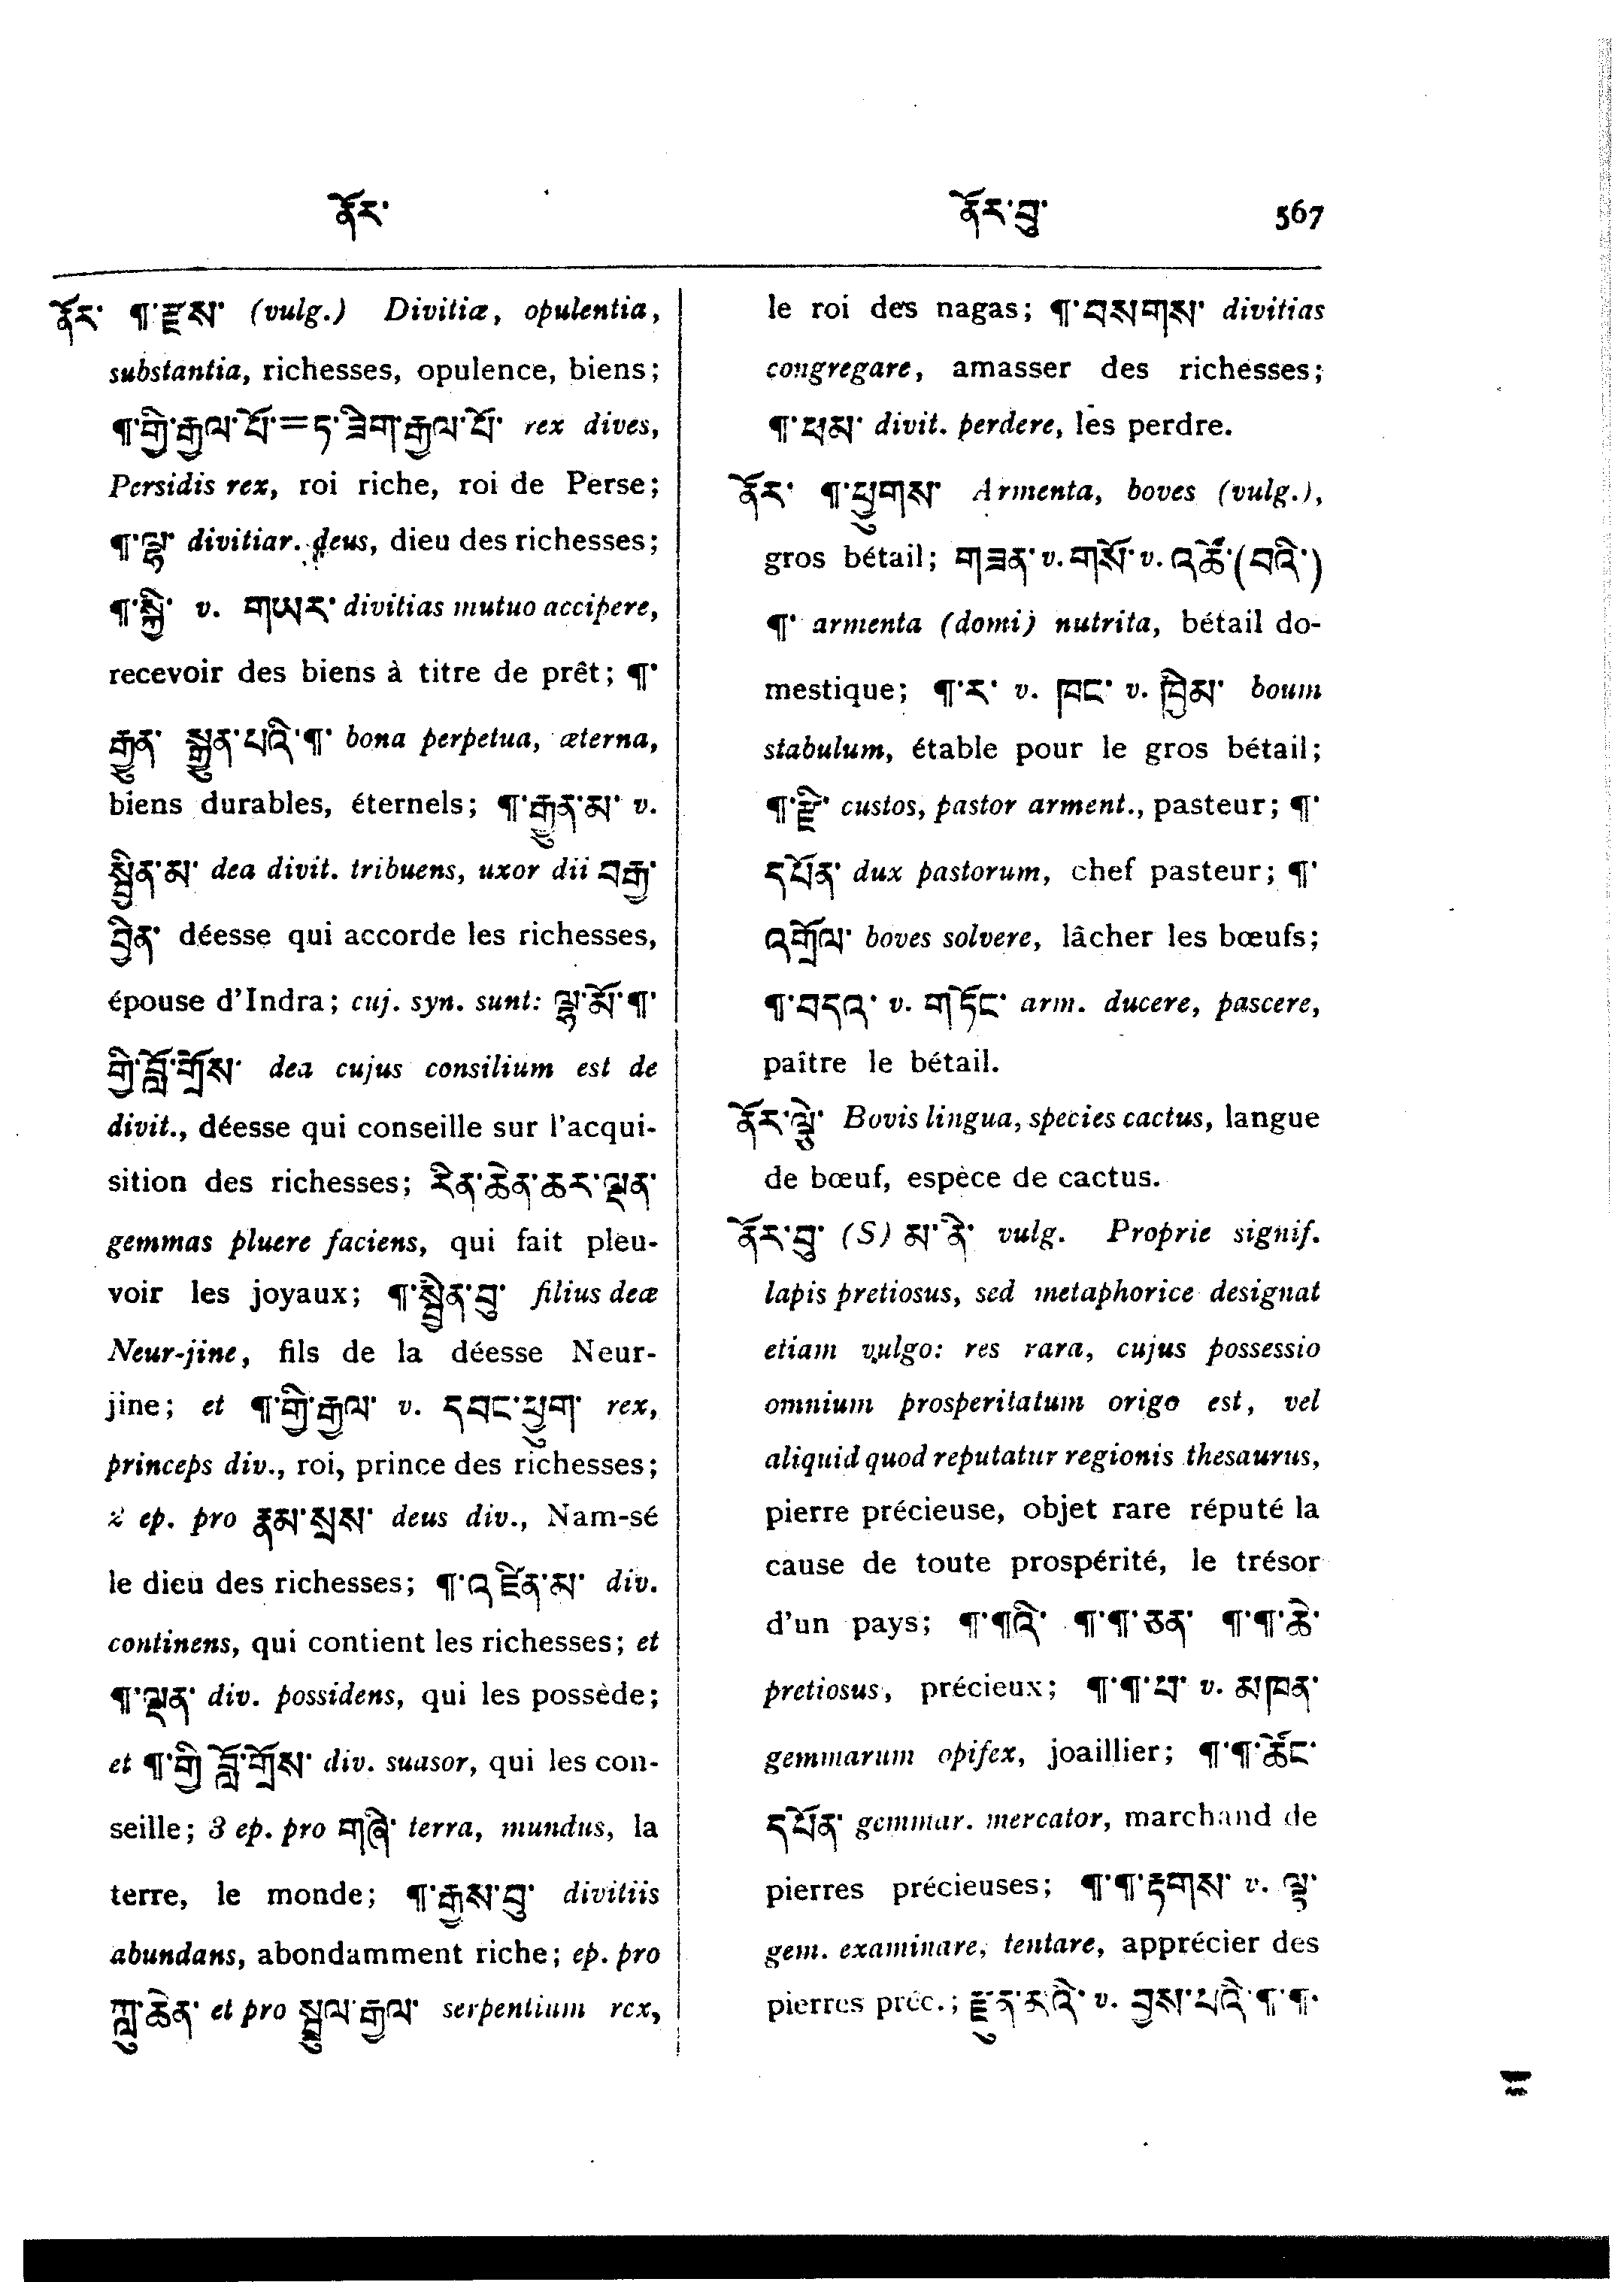 ནོར་
ནོར་བུ་ 567
ནོར་ ¶་རྫས་ (vulg.) Divitiæ, opulentia,
substantia, richesses, opulence, biens;
¶་གྱི་རྒྱལ་པོ་=ཏ་ཟིག་རྒྱལ་པོ་ rex dives,
Persidis rex, roi riche, roi de Perse;
¶་ལྷ་ divitiar. deus, dieu des richesses;
¶་སྐྱི་ v. གཡར་ divitias mutuo accipere,
recevoir des biens à titre de prêt; ¶་
རྒྱུན་ སྒྱུན་པའི་¶་ bona perpetua, æterna,
biens durables, éternels; ¶་རྒྱུན་མ་ v.
སྦྱིན་མ་ dea divit. tribuens, uxor dii བརྒྱ་
བྱིན་ déesse qui accorde les richesses,
épouse d'Indra; cuj. syn. sunt: ལྷ་མོ་¶་
གྱི་བློ་གྲོས་ dea cujus consilium est de
divit., déesse qui conseille sur l'acqui-
sition des richesses; རིན་ཆེན་ཆར་ལྡན་
gemmas pluere faciens, qui fait pleu-
voir les joyaux; ¶་སྦྱིན་བུ་ filius deæ
Neur-jine, fils de la déesse Neur-
jine; et ¶་གྱི་རྒྱལ་ v. དབང་ཕྱུག་ rex,
princeps div., roi, prince des richesses;
2 ep. pro རྣམ་སྲས་ deus div., Nam-sé
le dieu des richesses; ¶་འཛིན་མ་ div.
continens, qui contient les richesses; et
¶་ལྡན་ div. possidens, qui les possède;
et ¶་གྱི་བློ་གྲོས་ div. suasor, qui les con-
seille; 3 ep. pro གཞི་ terra, mundus, la
terre, le monde; ¶་རྒྱས་བུ་ divitiis
abundans, abondamment riche; ep. pro
ཀླུ་ཆེན་ et pro སྦྲུལ་རྒྱལ་ serpentium rex,
le roi des nagas; ¶་བསགས་ divitias
congregare, amasser des richesses;
¶་ཕམ་ divit. perdere, les perdre.
ནོར་ ¶་ཕྱུགས་ Armenta, boves (vulg.),
gros bétail; གཟན་ v. གསོ་ v. འཚོ་(བའི་)
¶་ armenta (domi) nutrita, bétail do-
mestique; ¶་ར་ v. ཁང་ v. ཁྱིམ་ boum
stabulum, étable pour le gros bétail;
¶་རྫི་ custos, pastor arment., pasteur; ¶་
དཔོན་ dux pastorum, chef pasteur; ¶་
འགྲོལ་ boves solvere, lâcher les bœufs;
¶་བདའ་ v. གཏོང་ arm. ducere, pascere,
paître le bétail.
ནོར་ལྕེ་ Bovis lingua, species cactus, langue
de bœuf, espèce de cactus.
ནོར་བུ་ (S) མ་ནི་ vulg. Proprie signif.
lapis pretiosus, sed metaphorice designat
etiam vulgo: res rara, cujus possessio
omnium prosperitatum origo est, vel
aliquid quod reputatur regionis thesaurus,
pierre précieuse, objet rare réputé la
cause de toute prospérité, le trésor
d'un pays; ¶་¶འི་ ¶་¶་ཅན་ ¶་¶་ཆེ་
pretiosus, précieux; ¶་¶་པ་ v. མཁན་
gemmarum opifex, joaillier; ¶་¶་ཚོང་
དཔོན་ gemmar. mercator, marchand de
pierres précieuses; ¶་¶་རྟགས་ v. ལྟ་
gem. examinare, tentare, apprécier des
pierres préc.; རྫུ་ན་རའི་ v. བྱས་པའི་¶་¶་